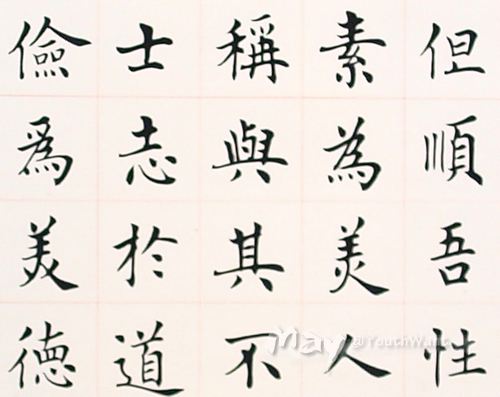 但順吾性
素為美人
稱與其不
士志於道
儉爲美德
May@YouthWant